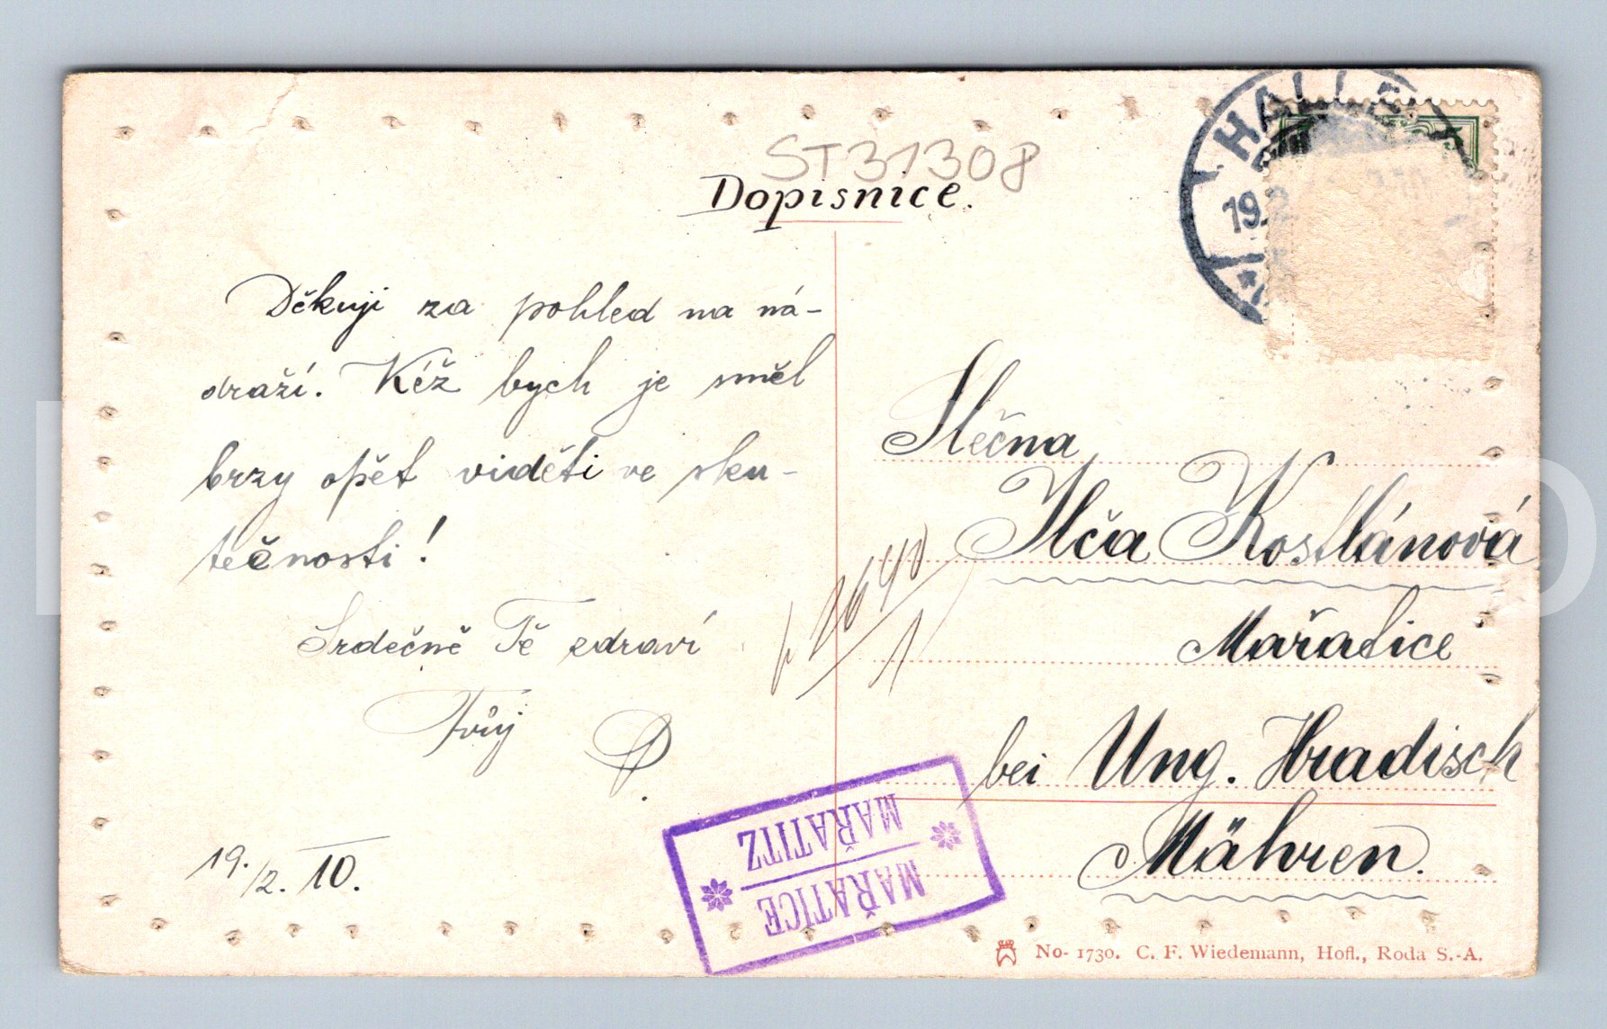 ST31308
Dopisnice.
HALLE
19.2
Děkuji za pohled na ná-
draží. Kéž bych je směl
brzy opět viděti ve sku-
tečnosti!
Srdečně Tě zdraví
Tvůj
19./2. 10.
Slečna
Ilča Kostlánová
Mařatice
bei Ung. Hradisch
Mähren.
1
MAŘATICE
MAŘATITZ
No. 1730. C. F. Wiedemann, Hofl., Roda S.-A.